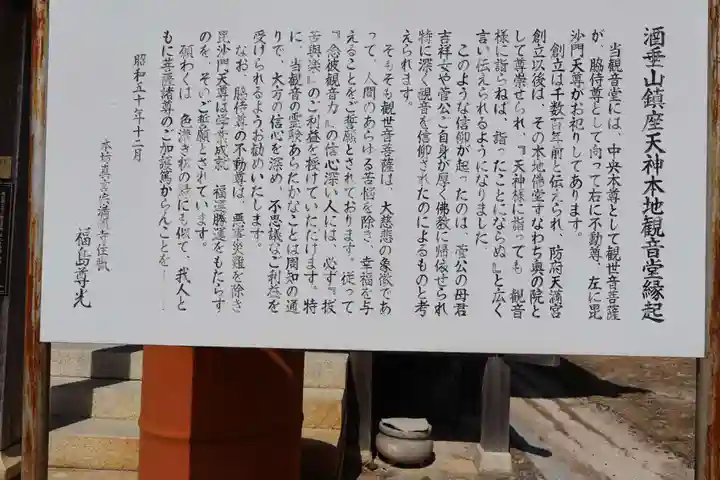 酒垂山鎮座天神本地観音堂縁起
当観音堂には、中央本尊として観世音菩薩
が、脇侍尊として向って右に不動尊、左に毘
沙門天尊がお祀りしてあります。
創立は千数百年前と伝えられ、防府天満宮
創立以後は、その本地佛堂すなわち奥の院と
して尊崇せられ、『天神様に詣っても観音
様に詣らねば、詣ったことにならぬ』と広く
言い伝えられるようになりました。
このような信仰が起ったのは、菅公の母君
吉祥女や菅公ご自身が厚く佛教に帰依せられ
特に深く観音を信仰されたのによるものと考
えられます。
そもそも観世音菩薩は、大慈悲の象徴であ
って、人間のあらゆる苦悩を除き、幸福を与
えることをご誓願とされております。従って
『念彼観音力』の信心深い人には、必ず『抜
苦與楽』のご利益を授けていただけます。特
に、当観音の霊験あらたかなことは周知の通
りで、大方の信心を深め、不思議なご利益を
受けられるようお勧めいたします。
なお、脇侍尊の不動尊は、悪事災難を除き
毘沙門天尊は学業成就、福運勝運をもたらす
のを、それぞれご誓願とされています。
願わくは、色深き松の緑にも似て、我人と
もに菩薩諸尊のご加護篤からんことを――
昭和五十年十二月
本坊真言宗満福寺住職
福島尊光